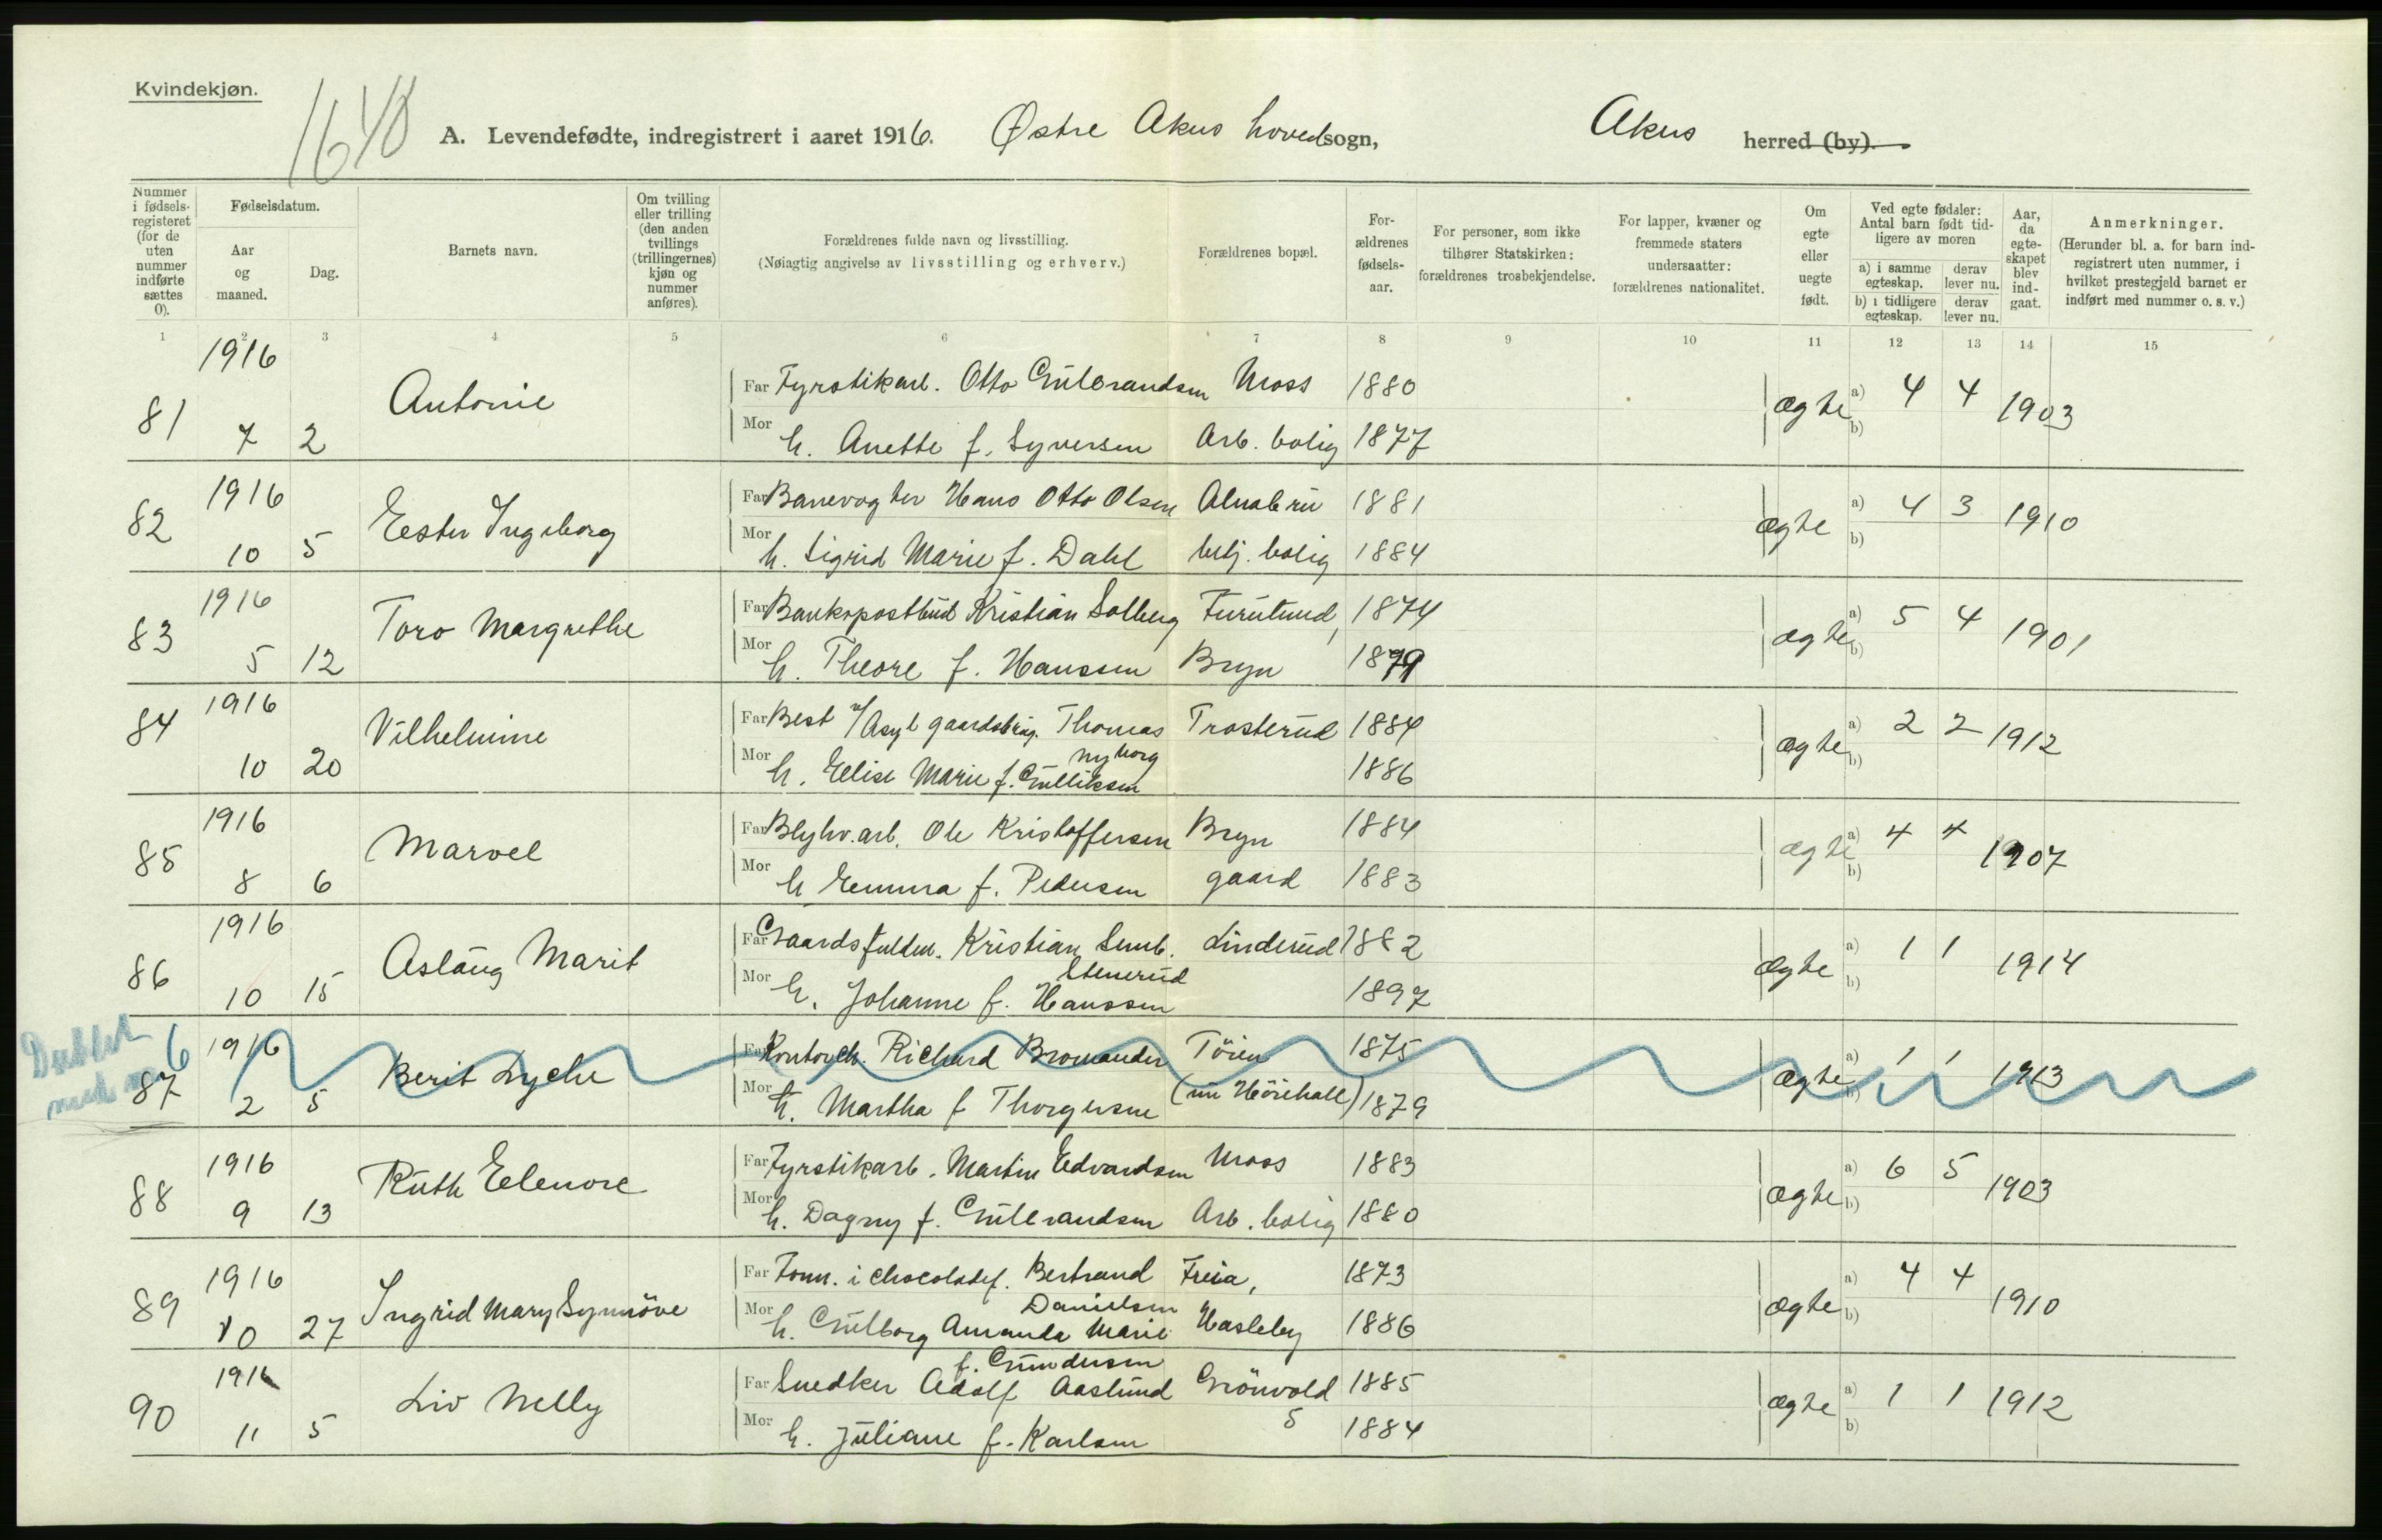 Kvindekjøn.
1640
A. Levendefødte, indregistrert i aaret 1916. Østre Akers hovedsogn, Akers herred (by).
Nummer i fødsels-registeret (for de uten nummer indførte sættes 0).
Fødselsdatum.
Aar og maaned.
Dag.
Barnets navn.
Om tvilling eller trilling (den anden tvillings (trillingernes) kjøn og nummer anføres).
Forældrenes fulde navn og livsstilling.
(Nøiagtig angivelse av livsstilling og erhverv.)
Forældrenes bopæl.
For-ældrenes fødsels-aar.
For personer, som ikke tilhører Statskirken: forældrenes trosbekjendelse.
For lapper, kvæner og fremmede staters undersaatter: forældrenes nationalitet.
Om egte eller uegte født.
Ved egte fødsler: Antal barn født tid-ligere av moren
a) i samme egteskap. derav lever nu.
b) i tidligere egteskap. derav lever nu.
Aar, da egte-skapet blev ind-gaat.
Anmerkninger.
(Herunder bl. a. for barn ind-registrert uten nummer, i hvilket prestegjeld barnet er indført med nummer o. s. v.)
1 2 3 4 5 6 7 8 9 10 11 12 13 14 15
1916
81 7 2 Antonie
Far Fyrstikarb. Otto Gulbrandsen Moss 1880
Mor h. Anette f. Syversen Arb. bolig 1877
ægte a) 4 4 1903
b)
1916
82 10 5 Ester Ingeborg
Far Banevogter Hans Otto Olsen Alnabru 1881
Mor h. Sigrid Marie f. Dahl betj. bolig 1884
ægte a) 4 3 1910
b)
1916
83 5 12 Toro Margrethe
Far Bankopostbud Kristian Solberg Furulund, 1874
Mor h. Theore f. Hanssen Bryn 1879
ægte a) 5 4 1901
b)
1916
84 10 20 Vilhelmine
Far Best v/Asyl gaardsbrug. Thomas Trosterud 1884
Nyborg
Mor h. Elise Marie f. Gulliksen 1886
ægte a) 2 2 1912
b)
1916
85 8 6 Marvel
Far Blyhv. arb. Ole Kristoffersen Bryn 1884
Mor h Emma f. Pedersen gaard 1883
ægte a) 4 4 1907
b)
1916
86 10 15 Aslaug Marit
Far Gaardsfuldm. Kristian Semb. Linderud 1882
Stenerud
Mor h. Johanne f. Hanssen 1897
ægte a) 1 1 1914
b)
Dublet med 6
1916
87 2 5 Berit Lyche
Far Kontorch. Richard Bromander Töien 1875
Mor h. Martha f Thorgersen (nu Höiehall) 1879
ægte a) 1 1 1913
b)
1916
88 9 13 Ruth Elenore
Far Fyrstikarb. Martin Edvardsen Moss 1883
Mor h. Dagny f. Gulbrandsen Arb. bolig 1880
ægte a) 6 5 1903
b)
1916
89 10 27 Ingrid Mary Synnöve
Far Form. i chocoladef. Bertrand Freia, 1873
Danielsen
Mor h. Gulborg Amanda Marie Hasleby 1886
f. Gundersen
ægte a) 4 4 1910
b)
1916
90 11 5 Liv Nelly
Far Snedker Adolf Aaslund Grönvold 1885
Mor h. Juliane f. Karlsen 5 1884
ægte a) 1 1 1912
b)